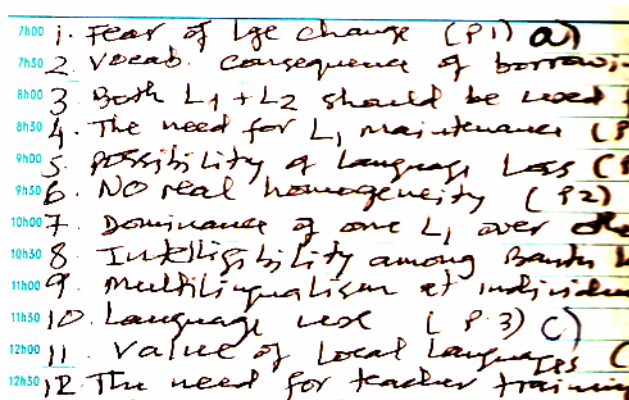 7h00 1. Fear of lge change (P1) a)
7h30 2. Vocab. consequence of borrowin
8h00 3 Both L1 + L2 should be used
8h30 4. The need for L1 maintenance (P
9h00 5. possibility of Language Loss (P
9h30 6. NO real homogeneity (P2)
10h00 7. Dominance of one L1 over othe
10h30 8. Intelligibility among Bantu L
11h00 9. Multilingualism at individua
11h30 10. Language use (P.3) c)
12h00 11. Value of Local Languages (
12h30 12. The need for teacher training